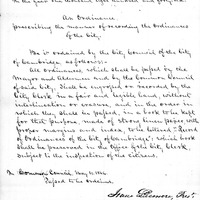 In the year One thousand eight hundred and forty six.
An Ordinance
prescribing the manner of recording the Ordinances
of the City.
Be it ordained by the City Council of the City
of Cambridge as follows:
All ordinances, which shall be passed by the
Mayor and Aldermen and by the Common Council
of said City, shall be engrossed or recorded by the
City Clerk, in a fair and legible hand, without
interlineation or erasure, and in the order in
which they shall be passed, in a book to be kept
for that purpose, made of strong linen paper with
proper margins and index, to be lettered "Record
of Ordinances of the City of Cambridge," which book
shall be preserved in the Office of the City Clerk,
subject to the inspection of the citizens.
In Common Council, May 11, 1846
Passed to be ordained.
Isaac Livermore, Pres't.